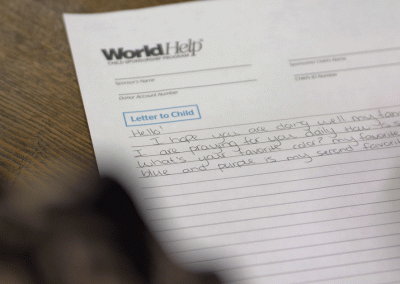 World Help
CHILD SPONSORSHIP PROGRAM
Sponsor's Name
Donor Account Number
Child ID Number
Letter to Child
Hello!
I hope you are doing well my
I are praying for you daily. How
What's your favorite color? my favorite
blue and purple is my second favorite